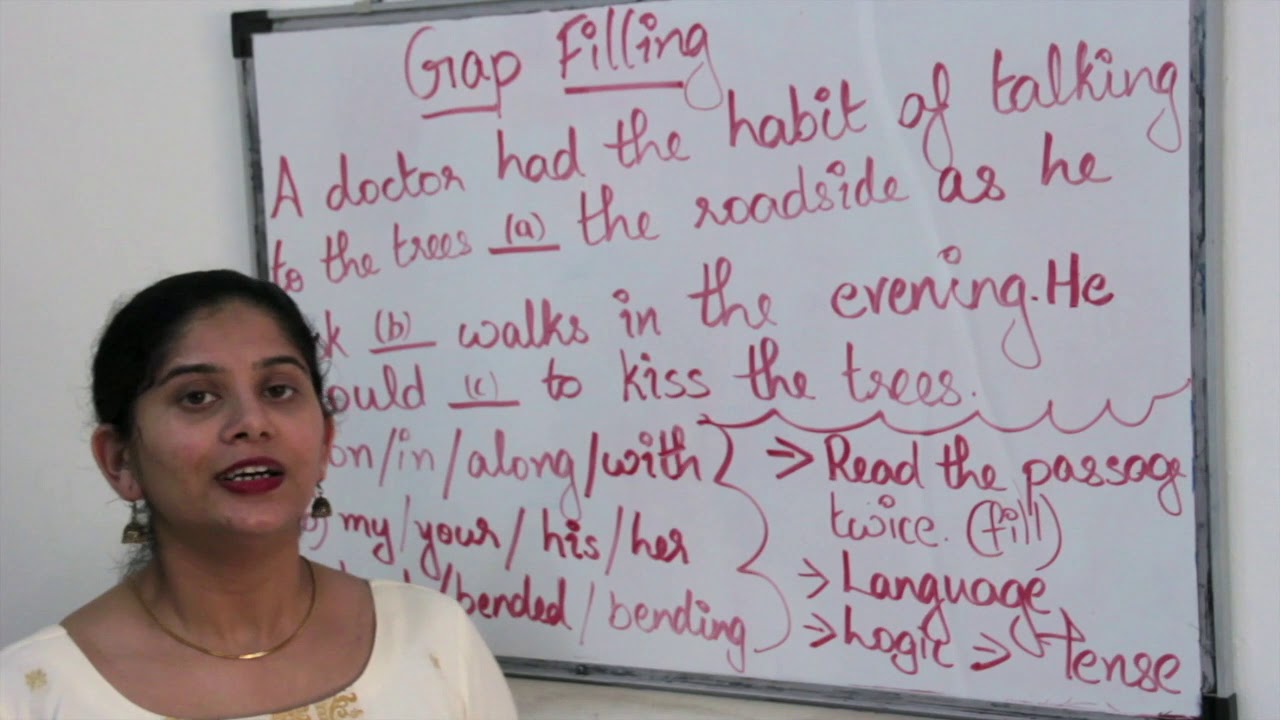 Gap Filling
A doctor had the habit of talking
to the trees (a) the roadside as he
(b) walks in the evening. He
(c) to kiss the trees.
on/in/along/with
my/your/his/her
/bended/bending
⇒ Read the passage
twice. (fill)
→ Language
→ Logic ⇒ Tense